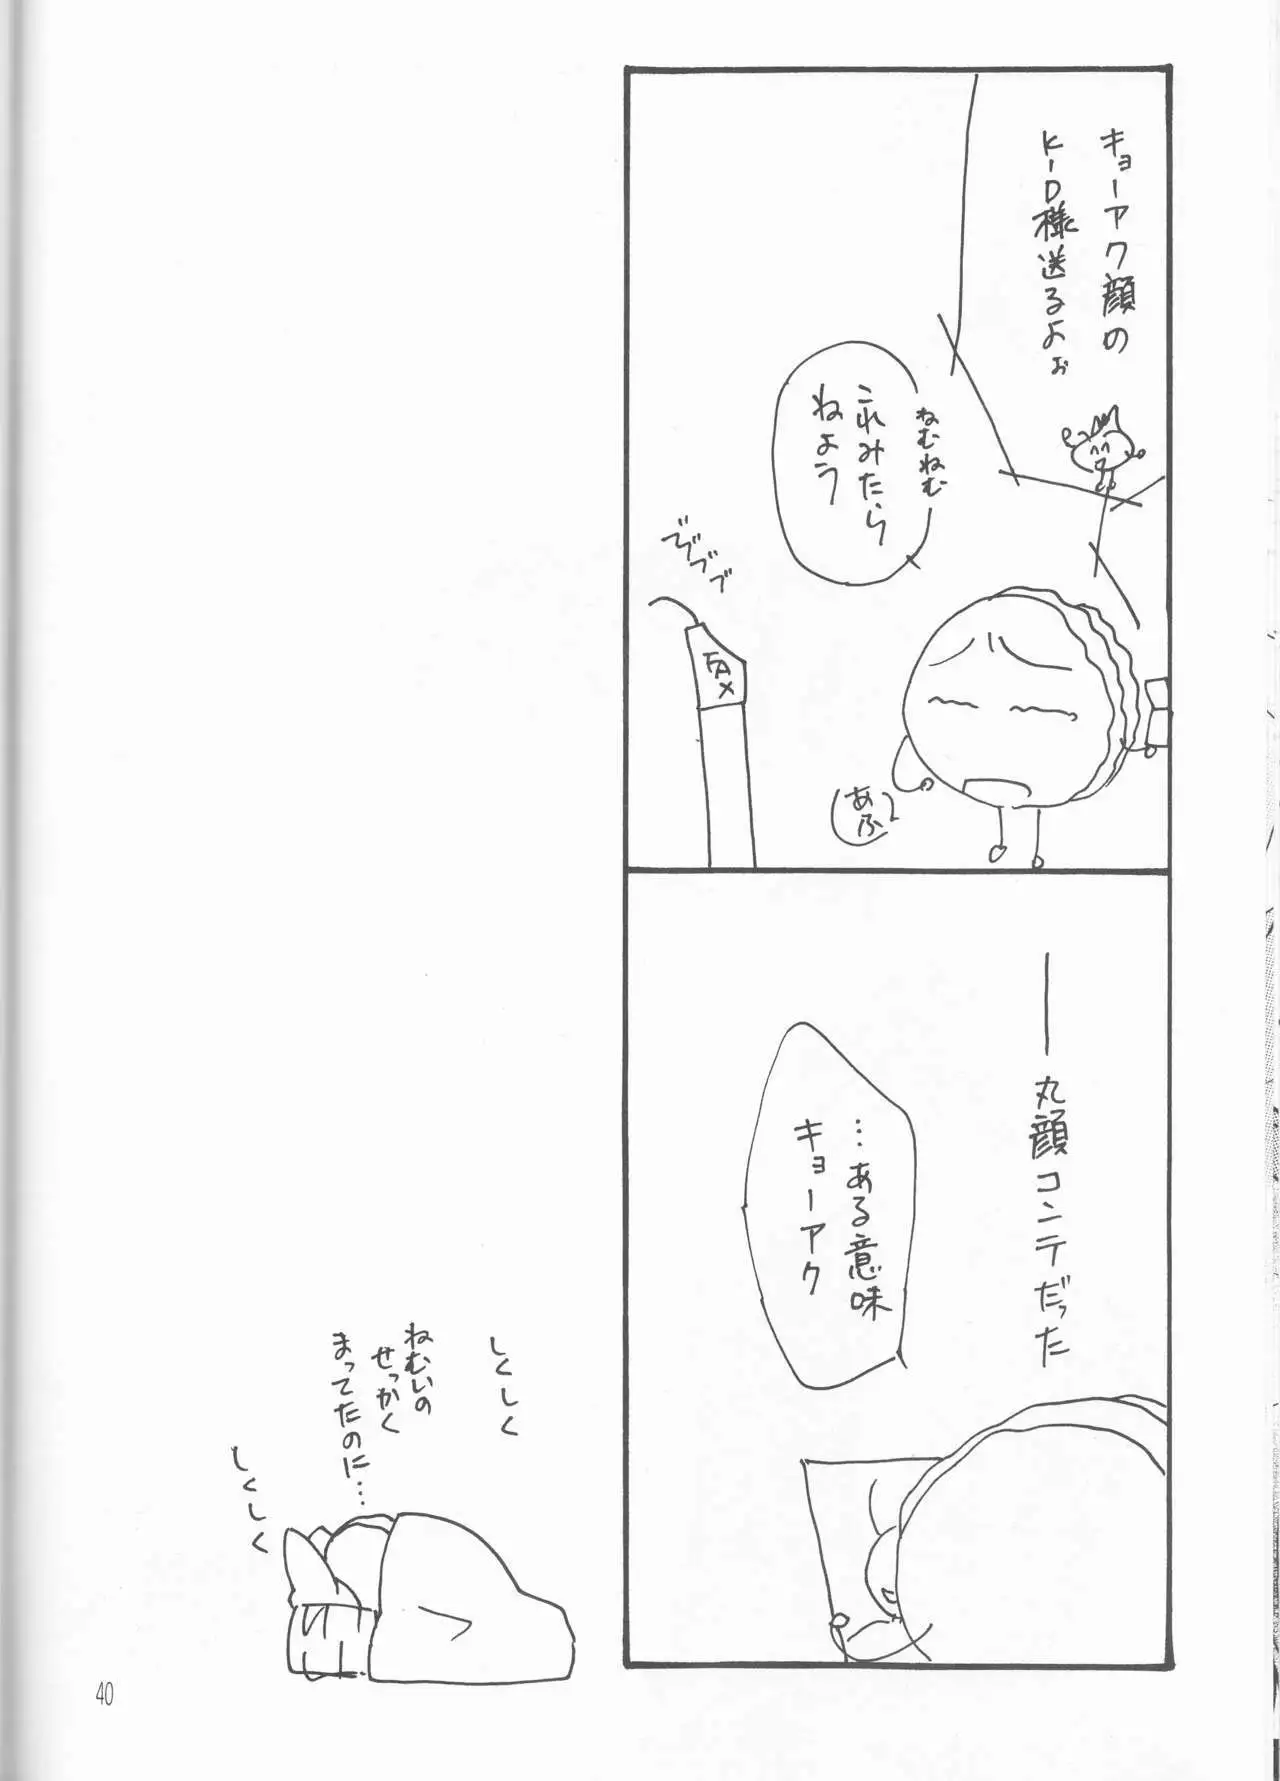 キョーアク顔の
K-ID様送るよぉ
ねむねむ
これみたら
ねよう
ででブブブ
FAX
あふ
――丸顔コンテだった
…ある意味
キョーアク
しくしく
ねむいの
せっかく
まってたのに…
しくしく
40